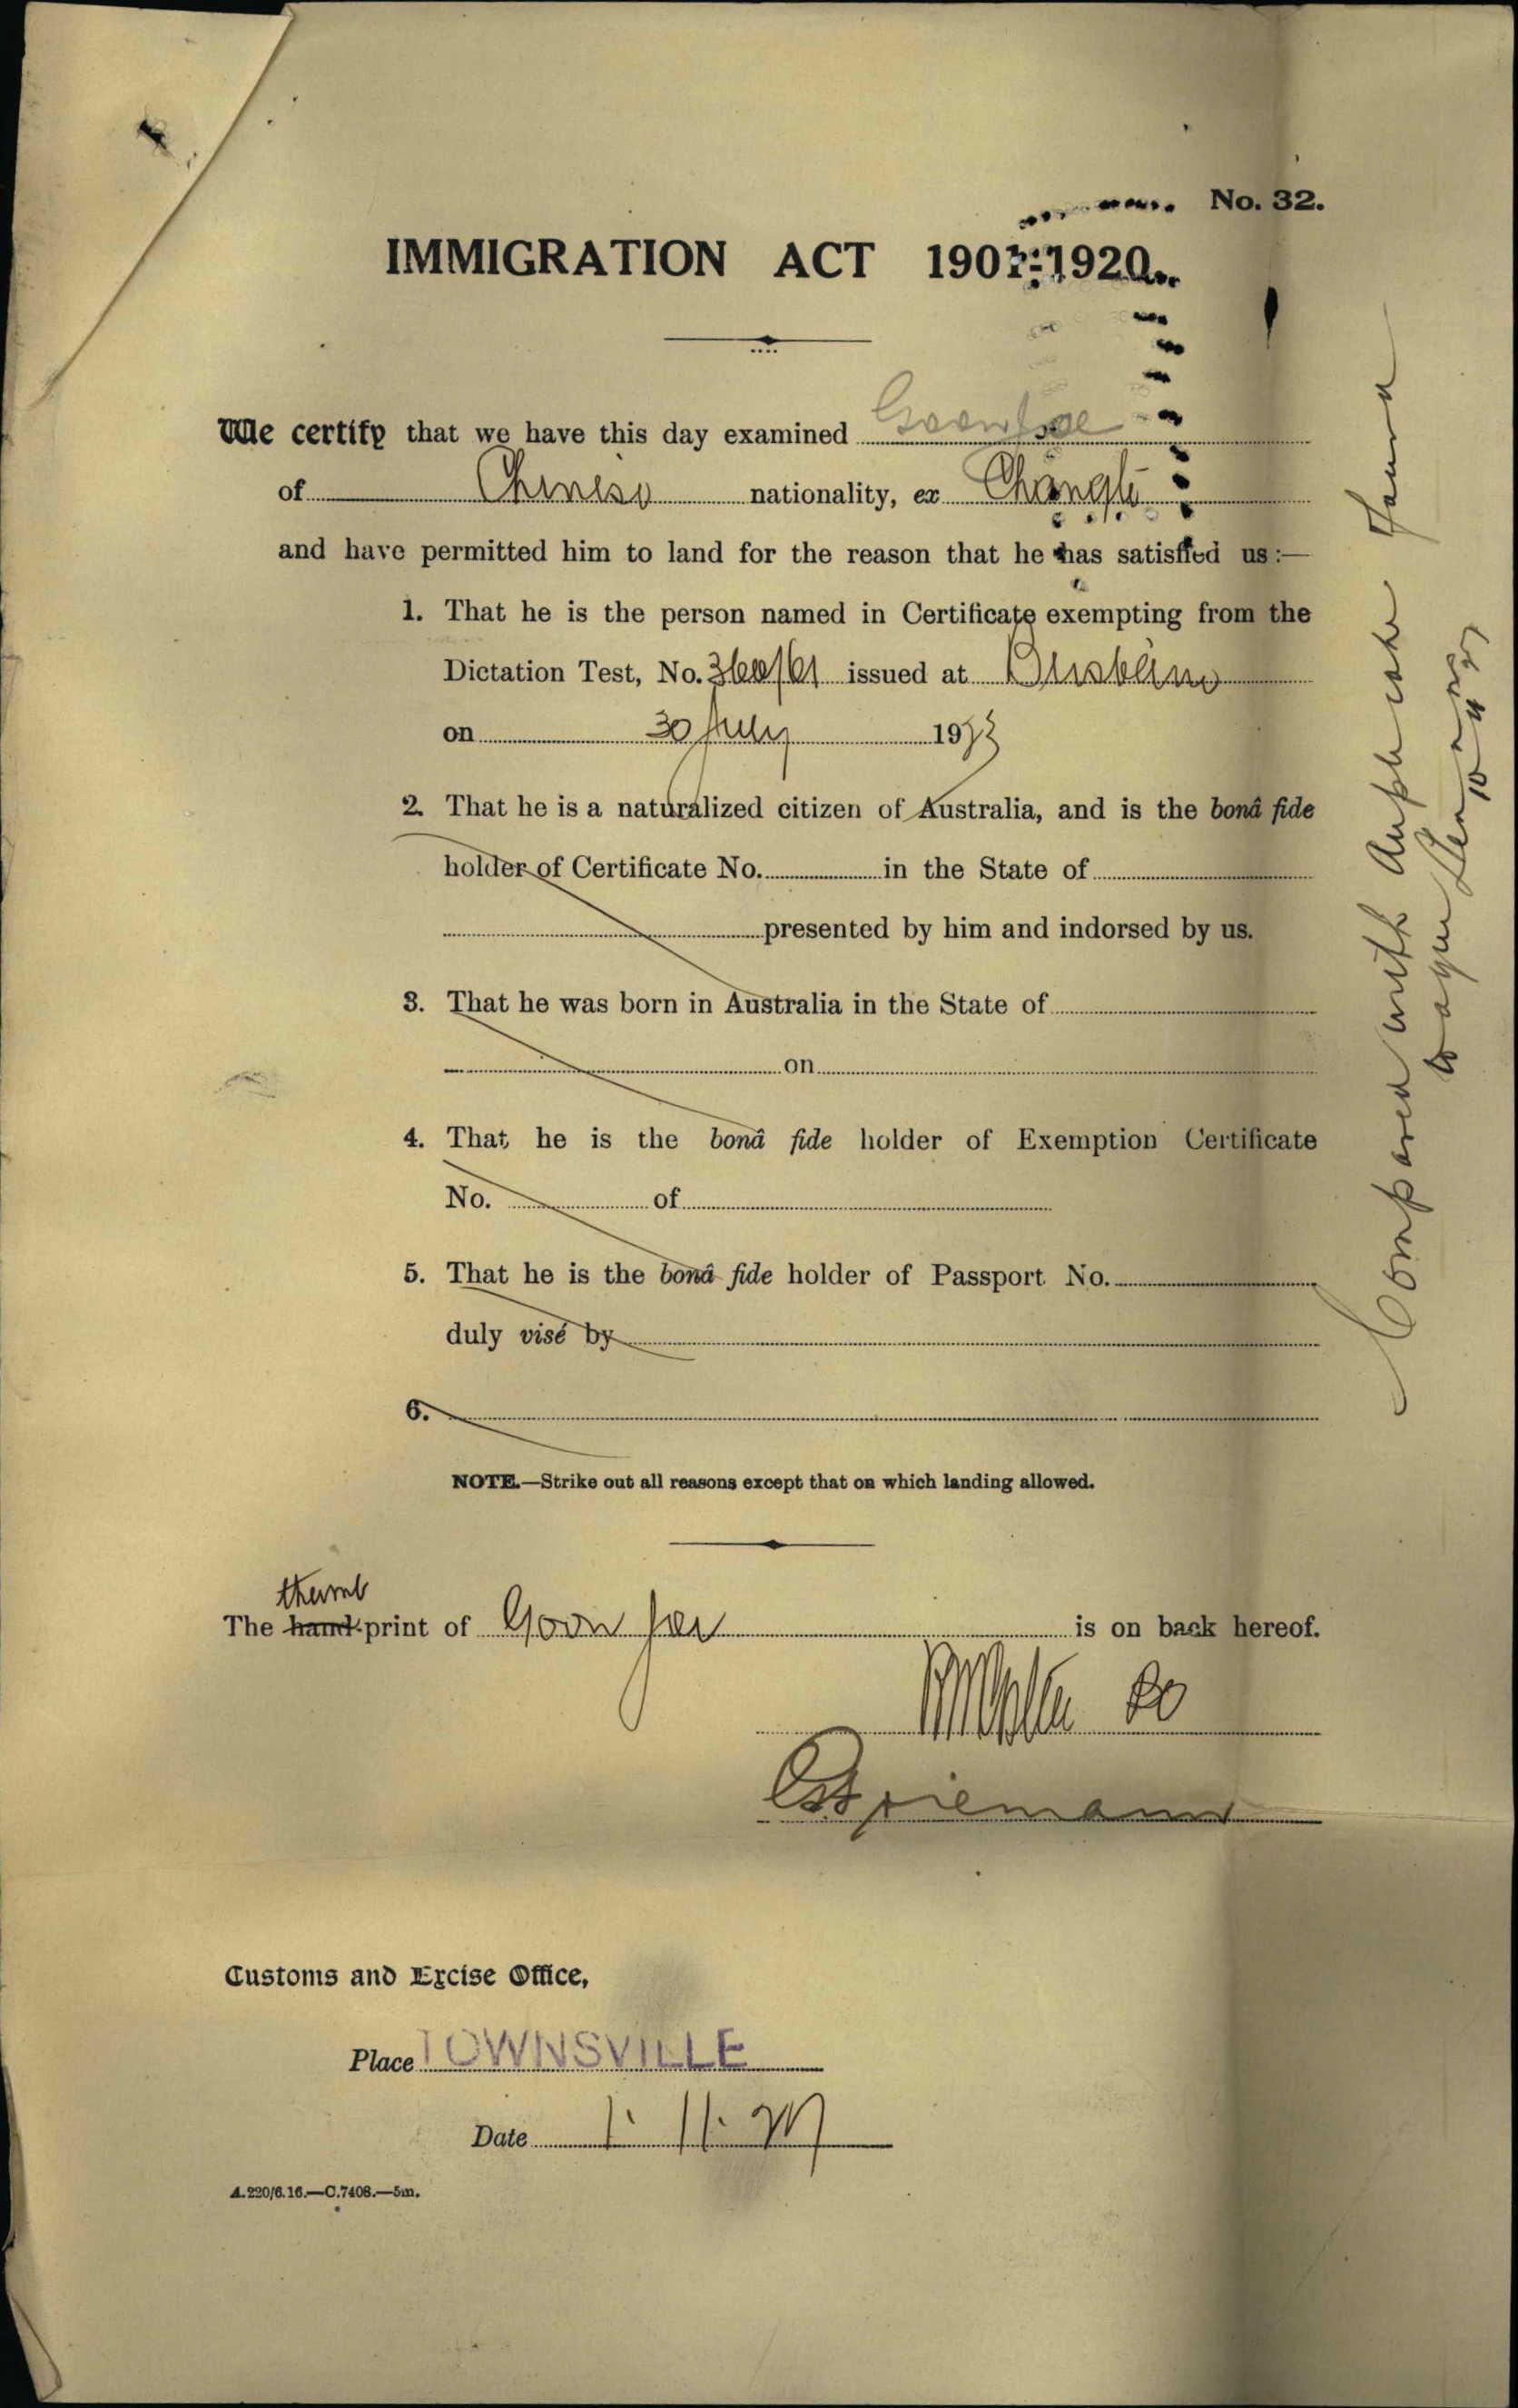 No. 32.
IMMIGRATION ACT 1901-1920.
We certify that we have this day examined Goon Joe
of Chinese nationality, ex Changte
and have permitted him to land for the reason that he has satisfied us:—
1. That he is the person named in Certificate exempting from the
Dictation Test, No. issued at Brisbane
on 30 July 1923
2. That he is a naturalized citizen of Australia, and is the bonâ fide
holder of Certificate No. in the State of
presented by him and indorsed by us.
3. That he was born in Australia in the State of
on
4. That he is the bonâ fide holder of Exemption Certificate
No. of
5. That he is the bonâ fide holder of Passport No.
duly visé by
6.
NOTE.—Strike out all reasons except that on which landing allowed.
thumb
The hand-print of Goon Joe is on back hereof.
Customs and Excise Office,
Place TOWNSVILLE
Date 1. 11.
A.220/6.16.—C.7408.—5m.
Compared with duplicate found
to agree